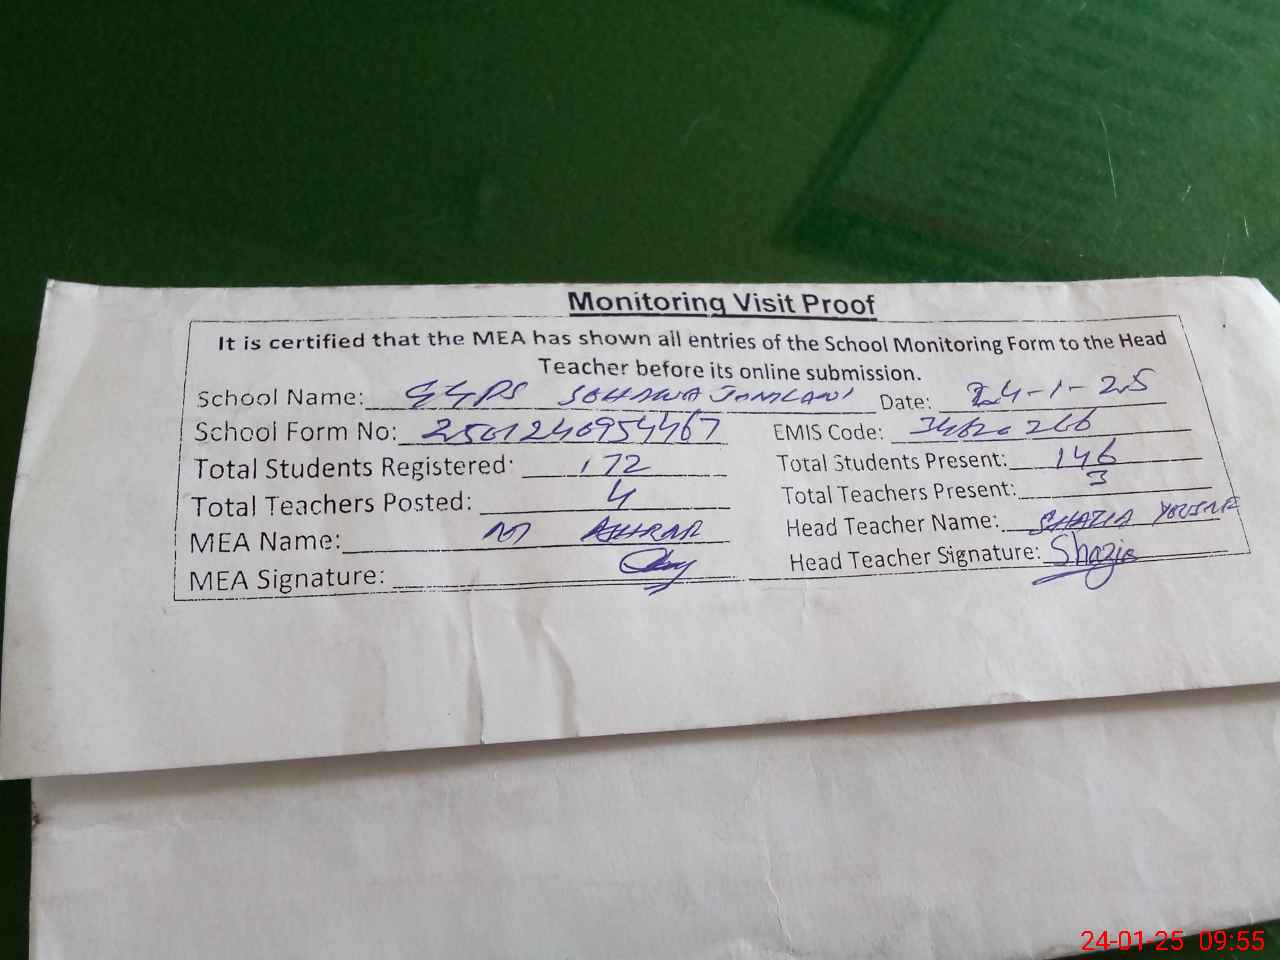 Monitoring Visit Proof
It is certified that the MEA has shown all entries of the School Monitoring Form to the Head
Teacher before its online submission.
School Name: GGPS SOHAWA JAMLANI Date: 24-1-25
School Form No: 2501240954467 EMIS Code: 34620266
Total Students Registered: 172 Total Students Present: 146
Total Teachers Posted: 4 Total Teachers Present: 3
MEA Name: M Head Teacher Name: SHAZIA
MEA Signature: Head Teacher Signature: Shazia
24-01-25 09:55